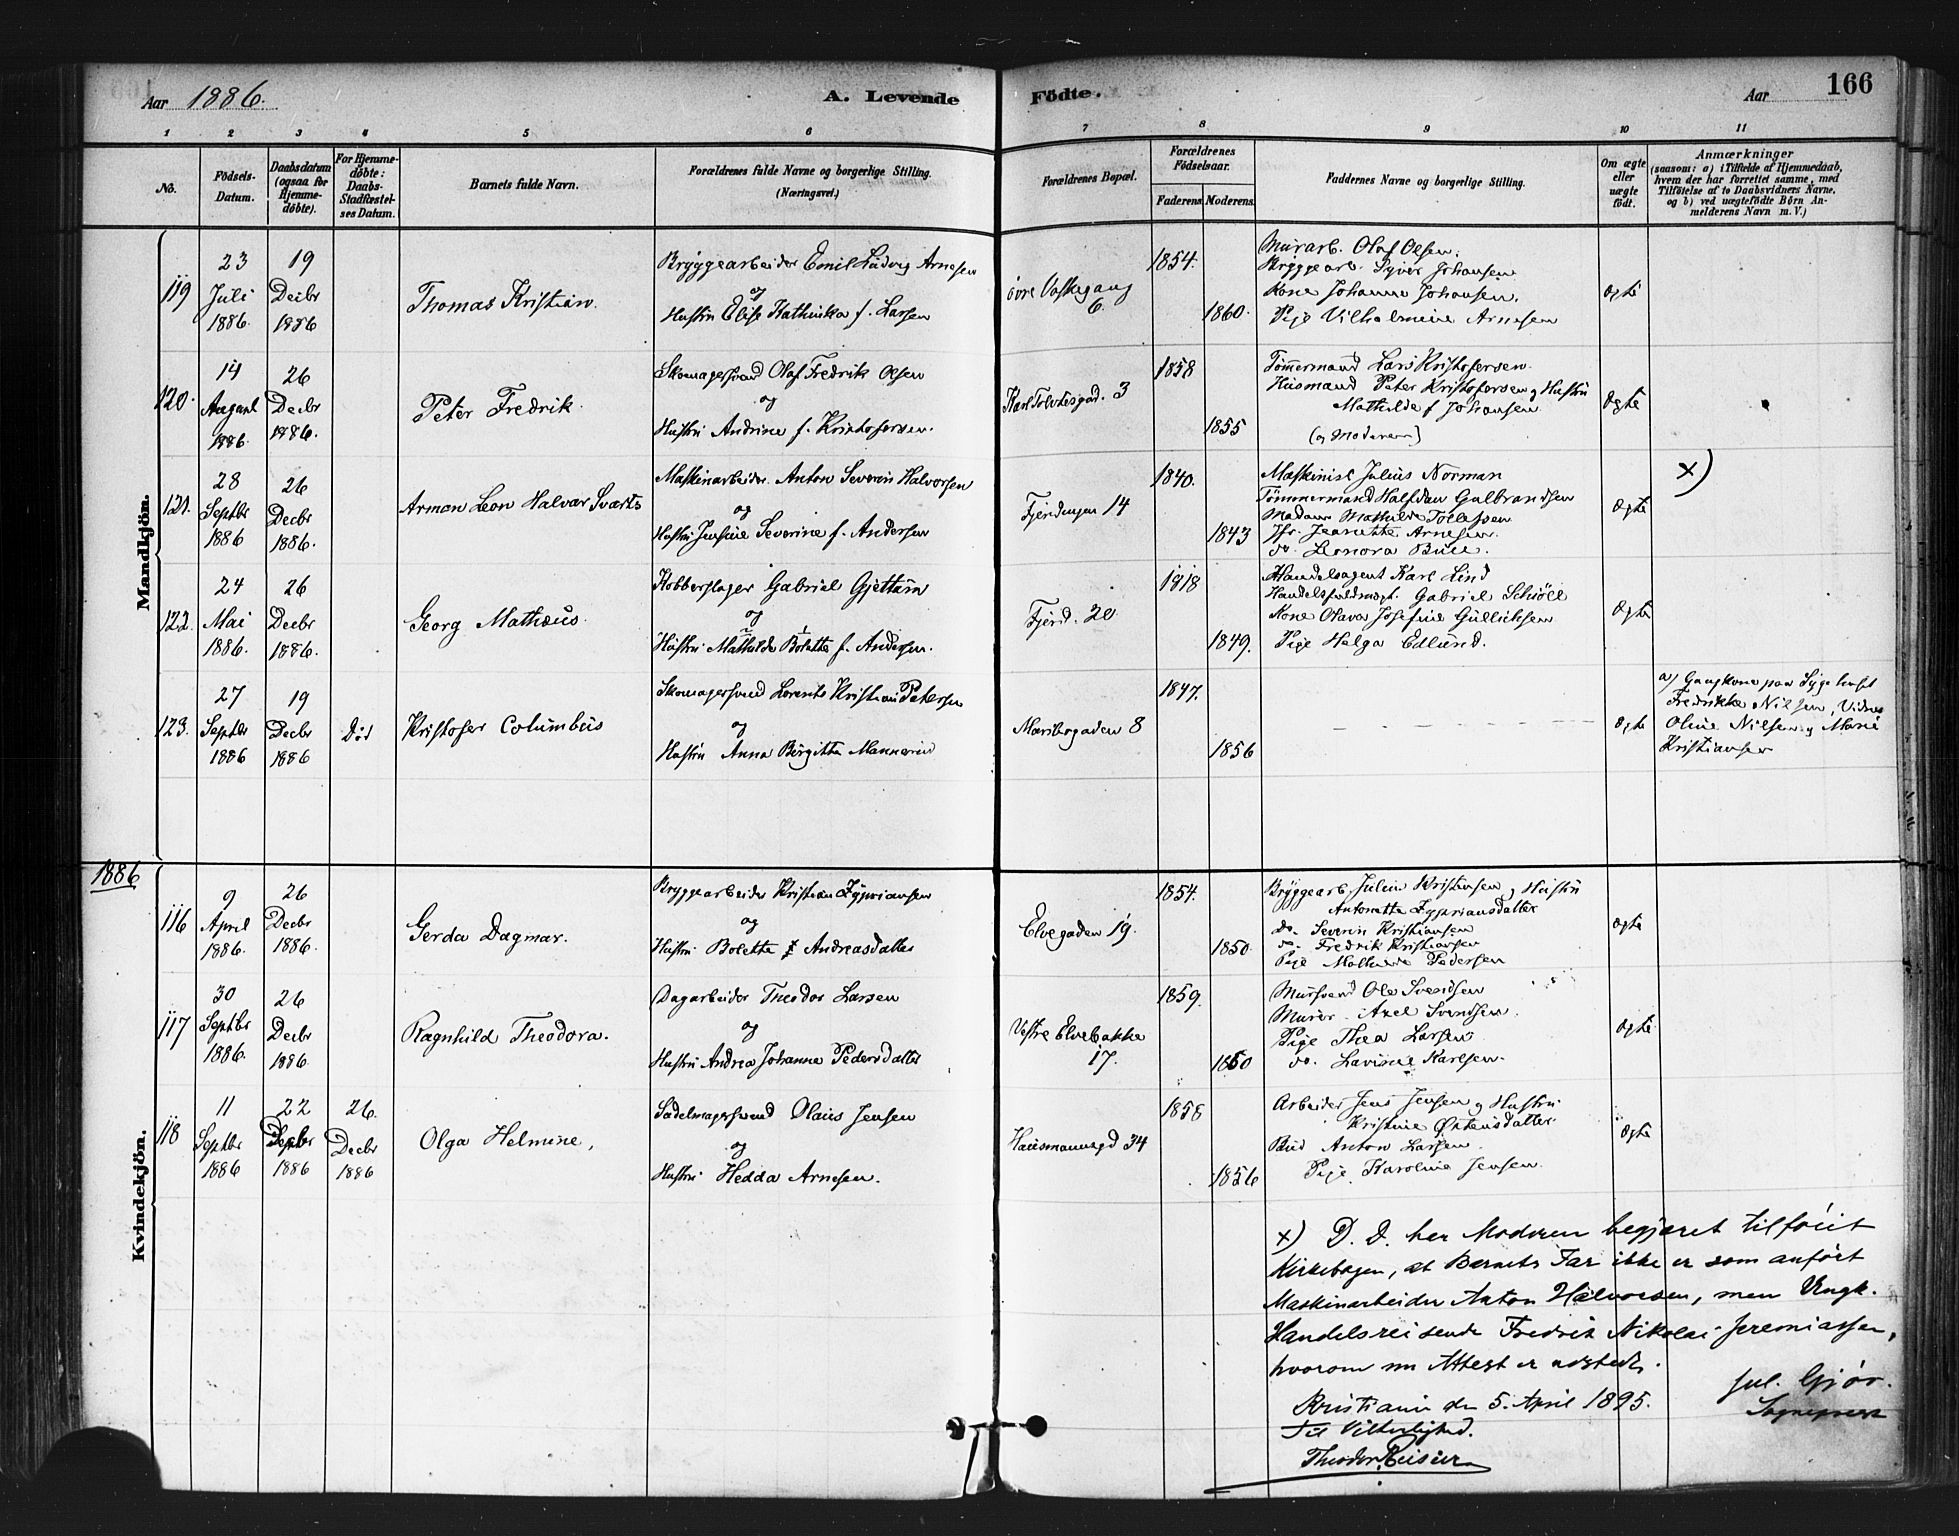 Aar 1886. A. Levende Födte. Aar 166
1 2 3 4 5 6 7 8 9 10 11
No.
Födsels-
Datum.
Daabsdatum
(ogsaa for
Hjemme-
döbte).
For Hjemme-
döbte:
Daabs-
Stadfæstel-
ses Datum.
Barnets fulde Navn.
Forældrenes fulde Navne og borgerlige Stilling.
(Næringsvei.)
Forældrenes Bopæl.
Forældrenes
Födselsaar.
Faderens Moderens.
Faddernes Navne og borgerlige Stilling.
Om ægte
eller
uægte
födt.
Anmærkninger
(saasom: a) i Tilfælde af Hjemmedaab,
hvem der har forrettet samme, med
Tilföielse af to Daabsvidners Navne,
og b) ved uægtefödte Börn An-
melderens Navn m. V.)
Mandkjön.
119
23
Juli
1886.
19
Decbr
1886
Thomas Kristian.
Bryggearbeider Emil Ludvig Arnesen
og
Hustru Elise Kathinka f. Larsen
övre Vaskegang
6.
1854.
1860.
Murarb. Olaf Olsen.
Bryggearb. Syver Johansen
Kone Johanne Johansen.
Pige Vilhelmine Arnesen
Ægte
120.
14
August
1886.
26
Decbr
1886.
Peter Fredrik.
Skomagersvend Olaf Fredrik Olsen
og
Hustru Andrine f. Kristofersen.
Karl Tolvtesgad. 3
1858
1855
Tømmermand Lars Kristofersen.
Husmand Peter Kristofersen og Hustru
Mathilde f Johansen
(og Moderen)
Ægte
121.
28
Septbr
1886
26
Decbr
1886.
Armon Leon Halvar Svarts
Maskinarbeider. Anton Severin Halvorsen
og
Hustru Jensine Severine f. Andersen
Fjerdingen 14
1840.
1843
Maskinist Julius Norman
Tömmermand Halfdan Gulbrandsen
Madam Mathilde Tollefsen
Jfr. Jeanette Arnesen.
do. Leonora Bull.
Ægte
x)
122.
24
Mai
1886.
26
Decbr
1886.
Georg Mathæus.
Kobberslager Gabriel Gjettum
og
Hustru Mathilde Bolette f. Andersen.
Fjerd. 20
1818
1849.
Handelsagent Karl Lind
Handelsfuldmægt. Gabriel Schöll
Kone Olava Josefine Gullichsen
Pige Helga Edlund.
Ægte
123.
27
Septbr
1886
19
Decbr
1886
Död
Kristofer Columbus
Skomagersvend Lorents Kristian Petersen
og
Hustru Anna Birgitta Mannerud
Maribogaden 8
1847.
1856
Ægte
a) Gangkone paa Sygehuset
Fredrikke Nilsen, Vidner
Oline Nilsen og Marie
Kristiansen
1886
Kvindekjön.
116
9
April
1886.
26
Decbr
1886.
Gerda Dagmar.
Bryggearbeider Kristian Zypriansen
og
Hustru Bolette f Andreasdatter
Elvegaden 19.
1854.
1850.
Bryggearb. Julius Kristiansen og Hustru
Antonette Zypriansdatter
do. Severin Kristiansen
do. Fredrik Kristiansen
Pige Mathilde Pedersen
Ægte
117
30
Septbr
1886.
26
Decbr
1886.
Ragnhild Theodora.
Dagarbeider Theodor Larsen
og
Hustru Andrea Johanne Pedersdatter
Vestre Elvebakke
17.
1859.
1860
Mursvend Ole Svendsen
Murer. Axel Svendsen.
Pige Thea Larsen
do. Lavinie Karlsen.
Ægte
118
11
Septbr
1886
22
Septbr
1886
26.
Decbr
1886
Olga Helmine,
Sadelmagersvend Olaus Jensen
og
Hustru Hedda Arnesen.
Hausmannsgd 34
1858
1856
Arbeider Jens Jensen og Hustru
Kristine Østensdatter
Bud Anton Larsen.
Pige. Karoline Jensen.
Ægte
x) D. D. har Moderen begjæret tilföiet
Kirkebogen, at Barnets Far ikke er som anført
Maskinarbeider Anton Halvorsen, men Ungk.
Handelsreisende Fredrik Nikolai Jeremiassen,
hvorom nu Attest er udstedt.
Kristiania den 5. April 1895.
Jul. Gjør.
Sognepræst
Til Vitterlighed.
Theodor Reisier